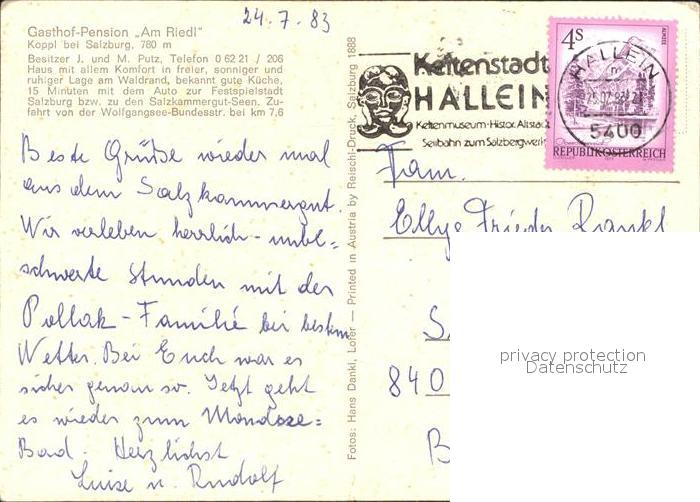 24.7.83
Gasthof-Pension „Am Riedl"
Koppl bei Salzburg, 780 m
Besitzer J. und M. Putz, Telefon 0 62 21 / 206
Haus mit allem Komfort in freier, sonniger und
ruhiger Lage am Waldrand, bekannt gute Küche,
15 Minuten mit dem Auto zur Festspielstadt
Salzburg bzw. zu den Salzkammergut-Seen. Zu-
fahrt von der Wolfgangsee-Bundesstr. bei km 7,6
Beste Grüße wieder mal
aus dem Salzkammergut.
Wir verleben herrlich-unbe=
schwerte Stunden mit der
Pollak-Familie bei bestem
Wetter. Bei Euch war es
sicher genau so. Jetzt geht
es wieder zum Mondsee=
Bad. Herzlichst
Luise u. Rudolf
Fotos: Hans Dankl, Lofer — Printed in Austria by Reischl-Druck, Salzburg 1888
Keltenstadt
HALLEIN
Keltenmuseum·Histor. Altstadt
Seilbahn zum Salzbergwerk
4S
ALMSEE
REPUBLIK ÖSTERREICH
HALLEIN
5400
Fam.
Elly u. Frieder Rankl
S
840
B
privacy protection
Datenschutz